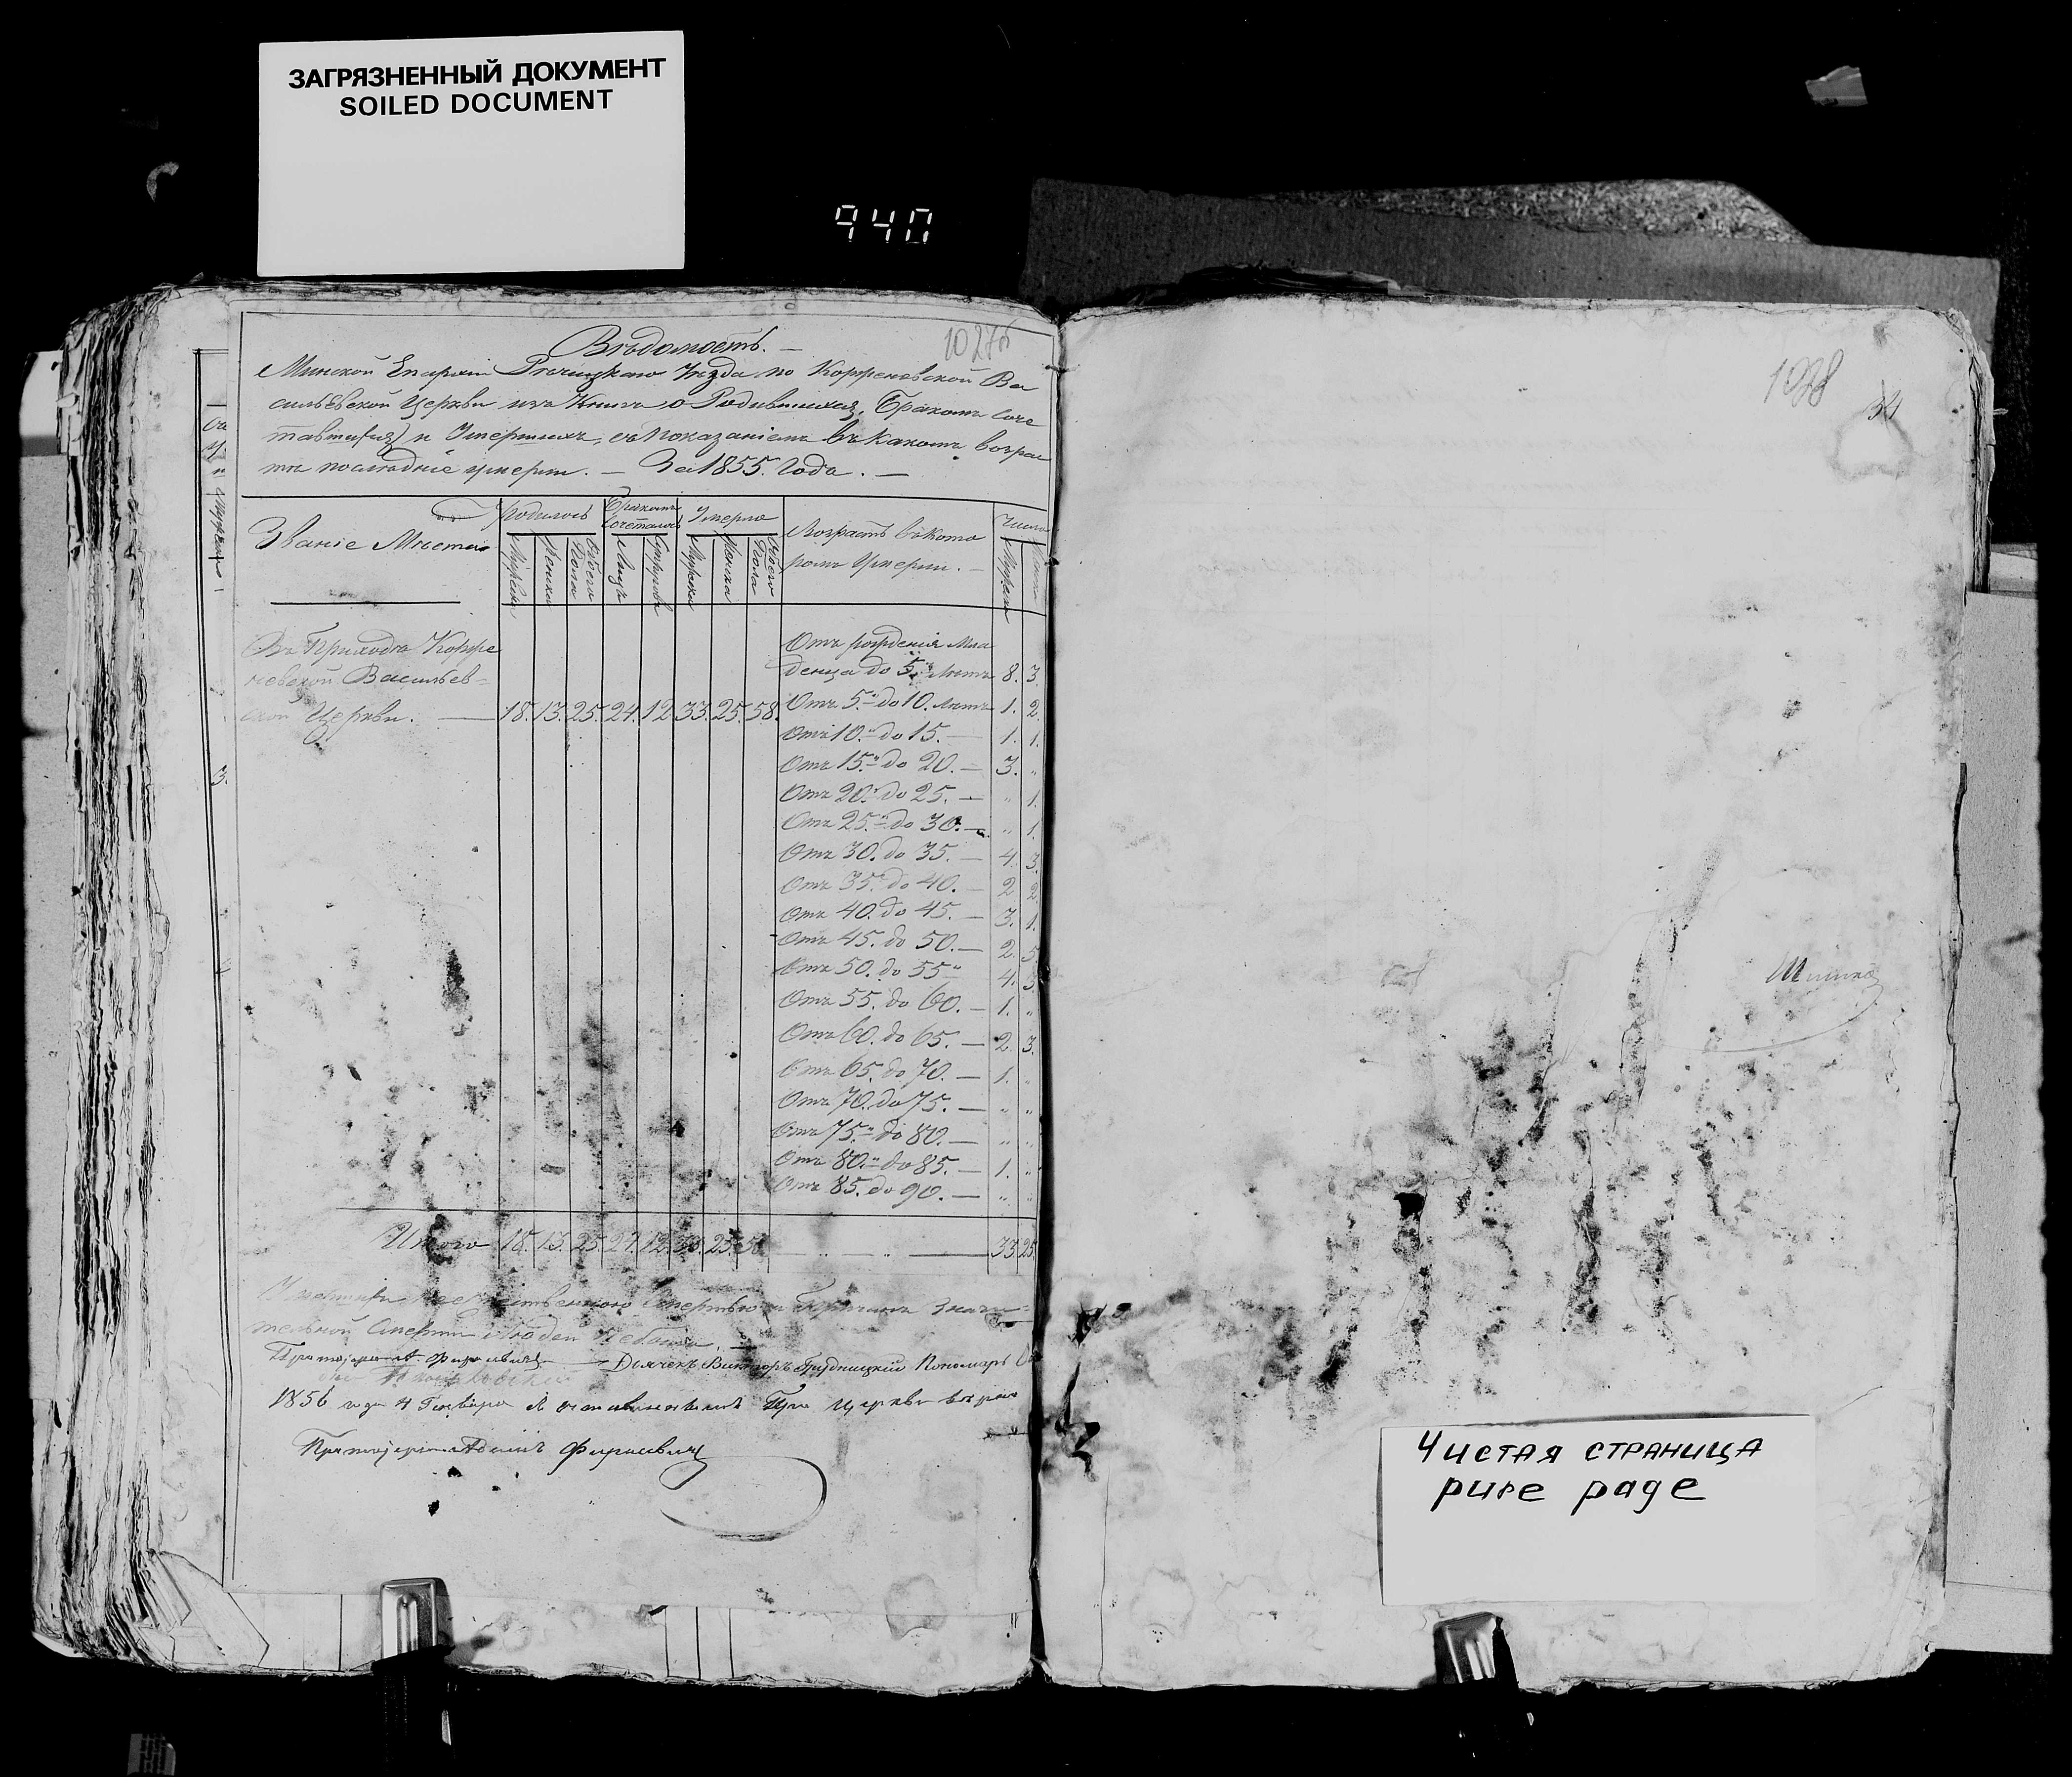 ЗАГРЯЗНЕННЫЙ ДОКУМЕНТ
SOILED DOCUMENT
940
1027б
Вѣдомость. —
Минской Епархіи Рѣчицкаго Уѣзда по Корреневской Ва
сильевской Церкви изъ Книгъ о Родившихся, Бракомъ соче
тавшихся и Умершихъ, съ показаніемъ въ какомъ возрас
тѣ послѣдніе умерли. — За 1855. Года. —
Званіе Мѣста
Родилось
Бракомъ
сочеталось
Умерло
Возрастъ въ кото
ромъ Умерли. —
Число
Мужска
Женска
Обоего Пола
Лицъ
Супруговъ
Мужска
Женска
Обоего Пола
Въ Приходѣ Корре
невской Васильев-
ской Церкви. — 18. 13. 25. 24. 12. 33. 25. 58.
Отъ рожденія Мла
денца до 5. Лѣтъ 8. 3.
Отъ 5. до 10. Лѣтъ 1. 2.
Отъ 10. до 15. — 1. 1.
Отъ 15. до 20. — 3. "
Отъ 20. до 25. — " 1.
Отъ 25. до 30. — " 1.
Отъ 30. до 35. — 4. 3.
Отъ 35. до 40. — 2 2.
Отъ 40. до 45. — 3. 1.
Отъ 45. до 50. — 2. 5.
Отъ 50. до 55 4. 3
Отъ 55. до 60. — 1. "
Отъ 60. до 65. — 2. 3.
Отъ 65. до 70. — 1. "
Отъ 70. до 75. — " "
Отъ 75. до 80. — " "
Отъ 80. до 85. — 1. "
Отъ 85. до 90. — " "
Итого 18. 13. 25. 24. 12. 33. 25. 58 — 33 25
Смертью и Причинъ Значи-
тельной Смерти Людей Небыло. —
Дьячекъ Викторъ Грудницкій Пономарь
1856 года 4 Генваря Церкви
Протоіерей Фирисевичъ
1028
34
Чистая страница
pure page